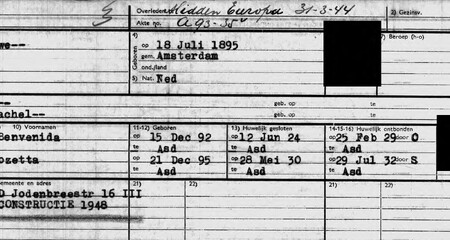 Overleden: Midden Europa 31-3-44 2) Gezinsv.
Akte no. A 93-35
4) 7) Beroep (h-o)
we-- Geboren op 18 Juli 1895
gem. Amsterdam
ond./land
5) Nat. Ned
-- geb. op te
achel-- geb. op te
10) Voornamen 11-12) Geboren 13) Huwelijk gesloten 14-15-16) Huwelijk ontbonden
Benvenida op 15 Dec 92 op 12 Jun 24 op 25 Feb 29 door O
te Asd te Asd te Asd
ozetta op 21 Dec 95 op 28 Mei 30 op 29 Jul 32 door S
te Asd te Asd te Asd
emeente en adres 21) 22) 21) 22)
D Jodenbreestr 16 III
CONSTRUCTIE 1948